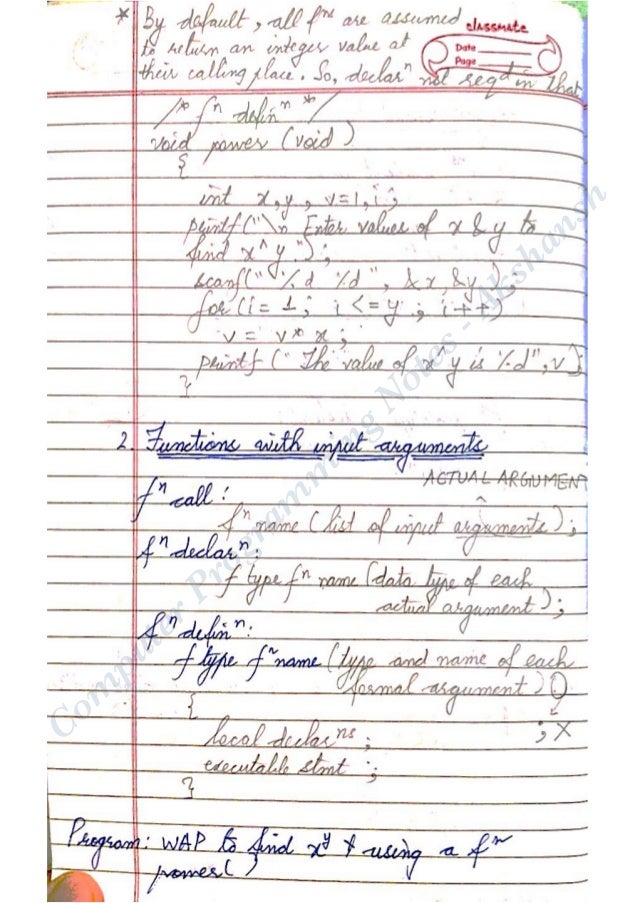 * By default, all fⁿˢ are assumed
to return an integer value at
their calling place. So, declarⁿ not reqd in that
classmate
Date
Page
/* fⁿ definⁿ */
void power (void)
{
int x, y, v=1, i ;
printf("\n Enter values of x & y to
find x^y.");
scanf("%d %d", &x, &y);
for (i = 1; i <= y ; i++)
v = v* x ;
printf ("The value of x^y is %d", v);
}
2. Functions with input arguments
ACTUAL ARGUMENT
fⁿ call :
fⁿ name (list of input arguments);
fⁿ declarⁿ:
f type fⁿ name (data type of each
actual argument);
fⁿ definⁿ:
f type fⁿ name (type and name of each
formal argument)
; X
{
local declarⁿˢ ;
executable stmt ;
}
Program: WAP to find xʸ using a fⁿ
power( )
Computer Programming Notes - Akshansh